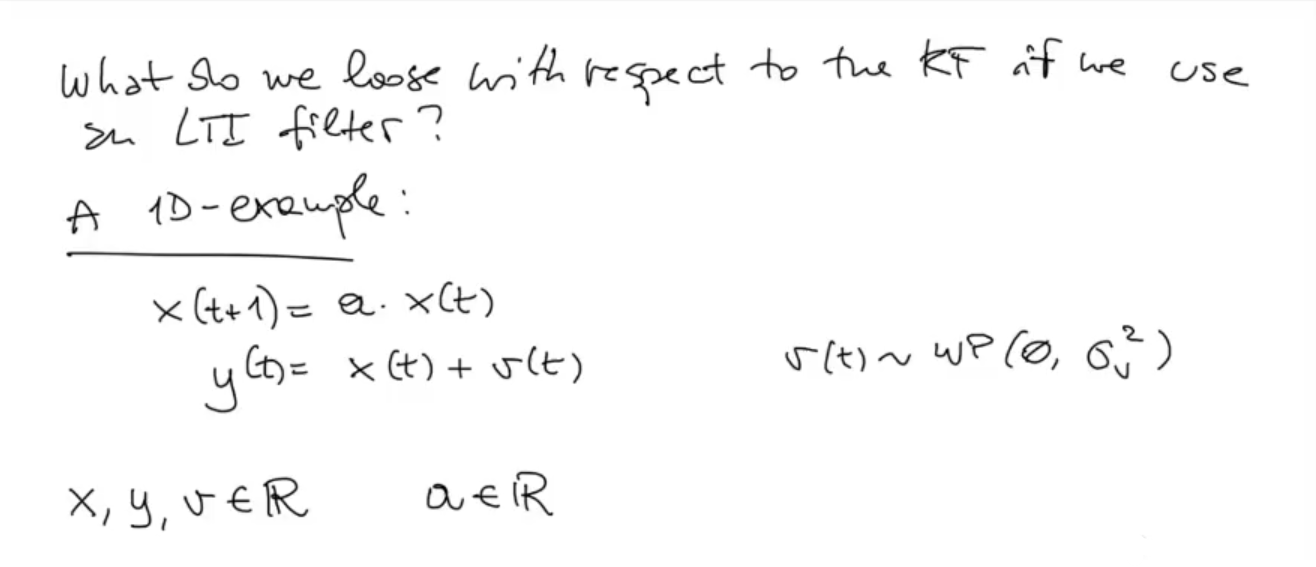 What do we loose with respect to the KF if we use
an LTI filter?
A 1D-example:
x(t+1) = a · x(t)
y(t) = x(t) + v(t)    v(t) ~ WP(∅, σᵥ²)
x, y, v ∈ ℝ    a ∈ ℝ